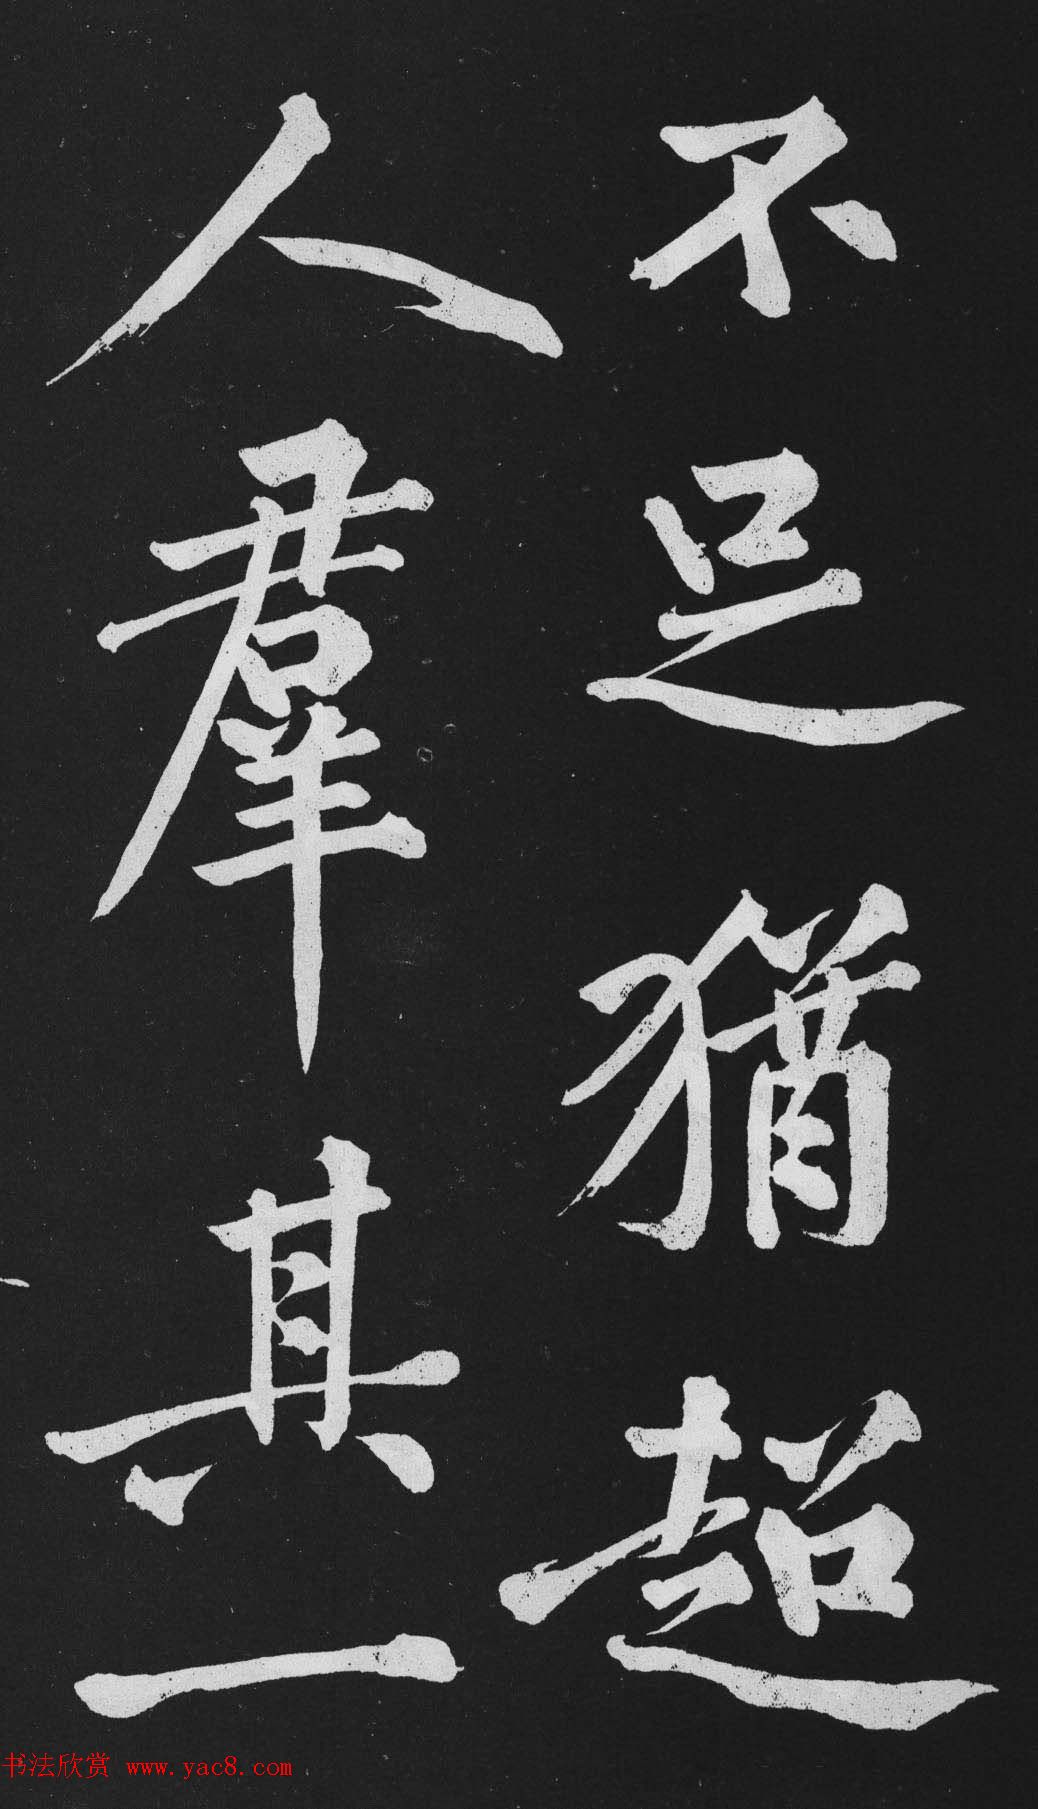 不足猶超
人羣其一
书法欣赏 www.yac8.com